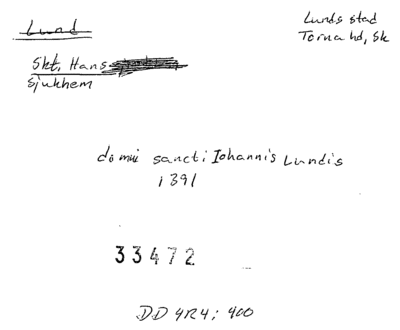 Lund
Lunds stad
Torna hd, Sk
Skt. Hans
Sjukhem
domui sancti Iohannis Lundis
1391
33472
DD 4R4; 400